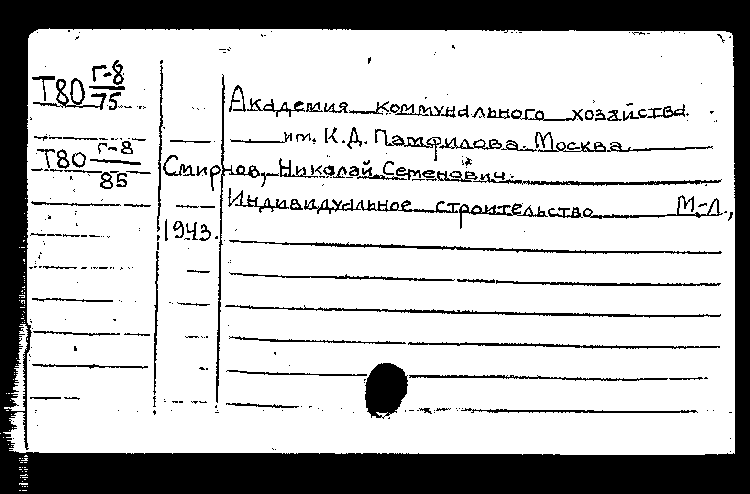 Т80 Г-8/75
Академия коммунального хозяйства
им. К.Д. Памфилова. Москва
Т80 Г-8/85
Смирнов, Николай Семенович.
Индивидуальное строительство М.-Л.,
1943.